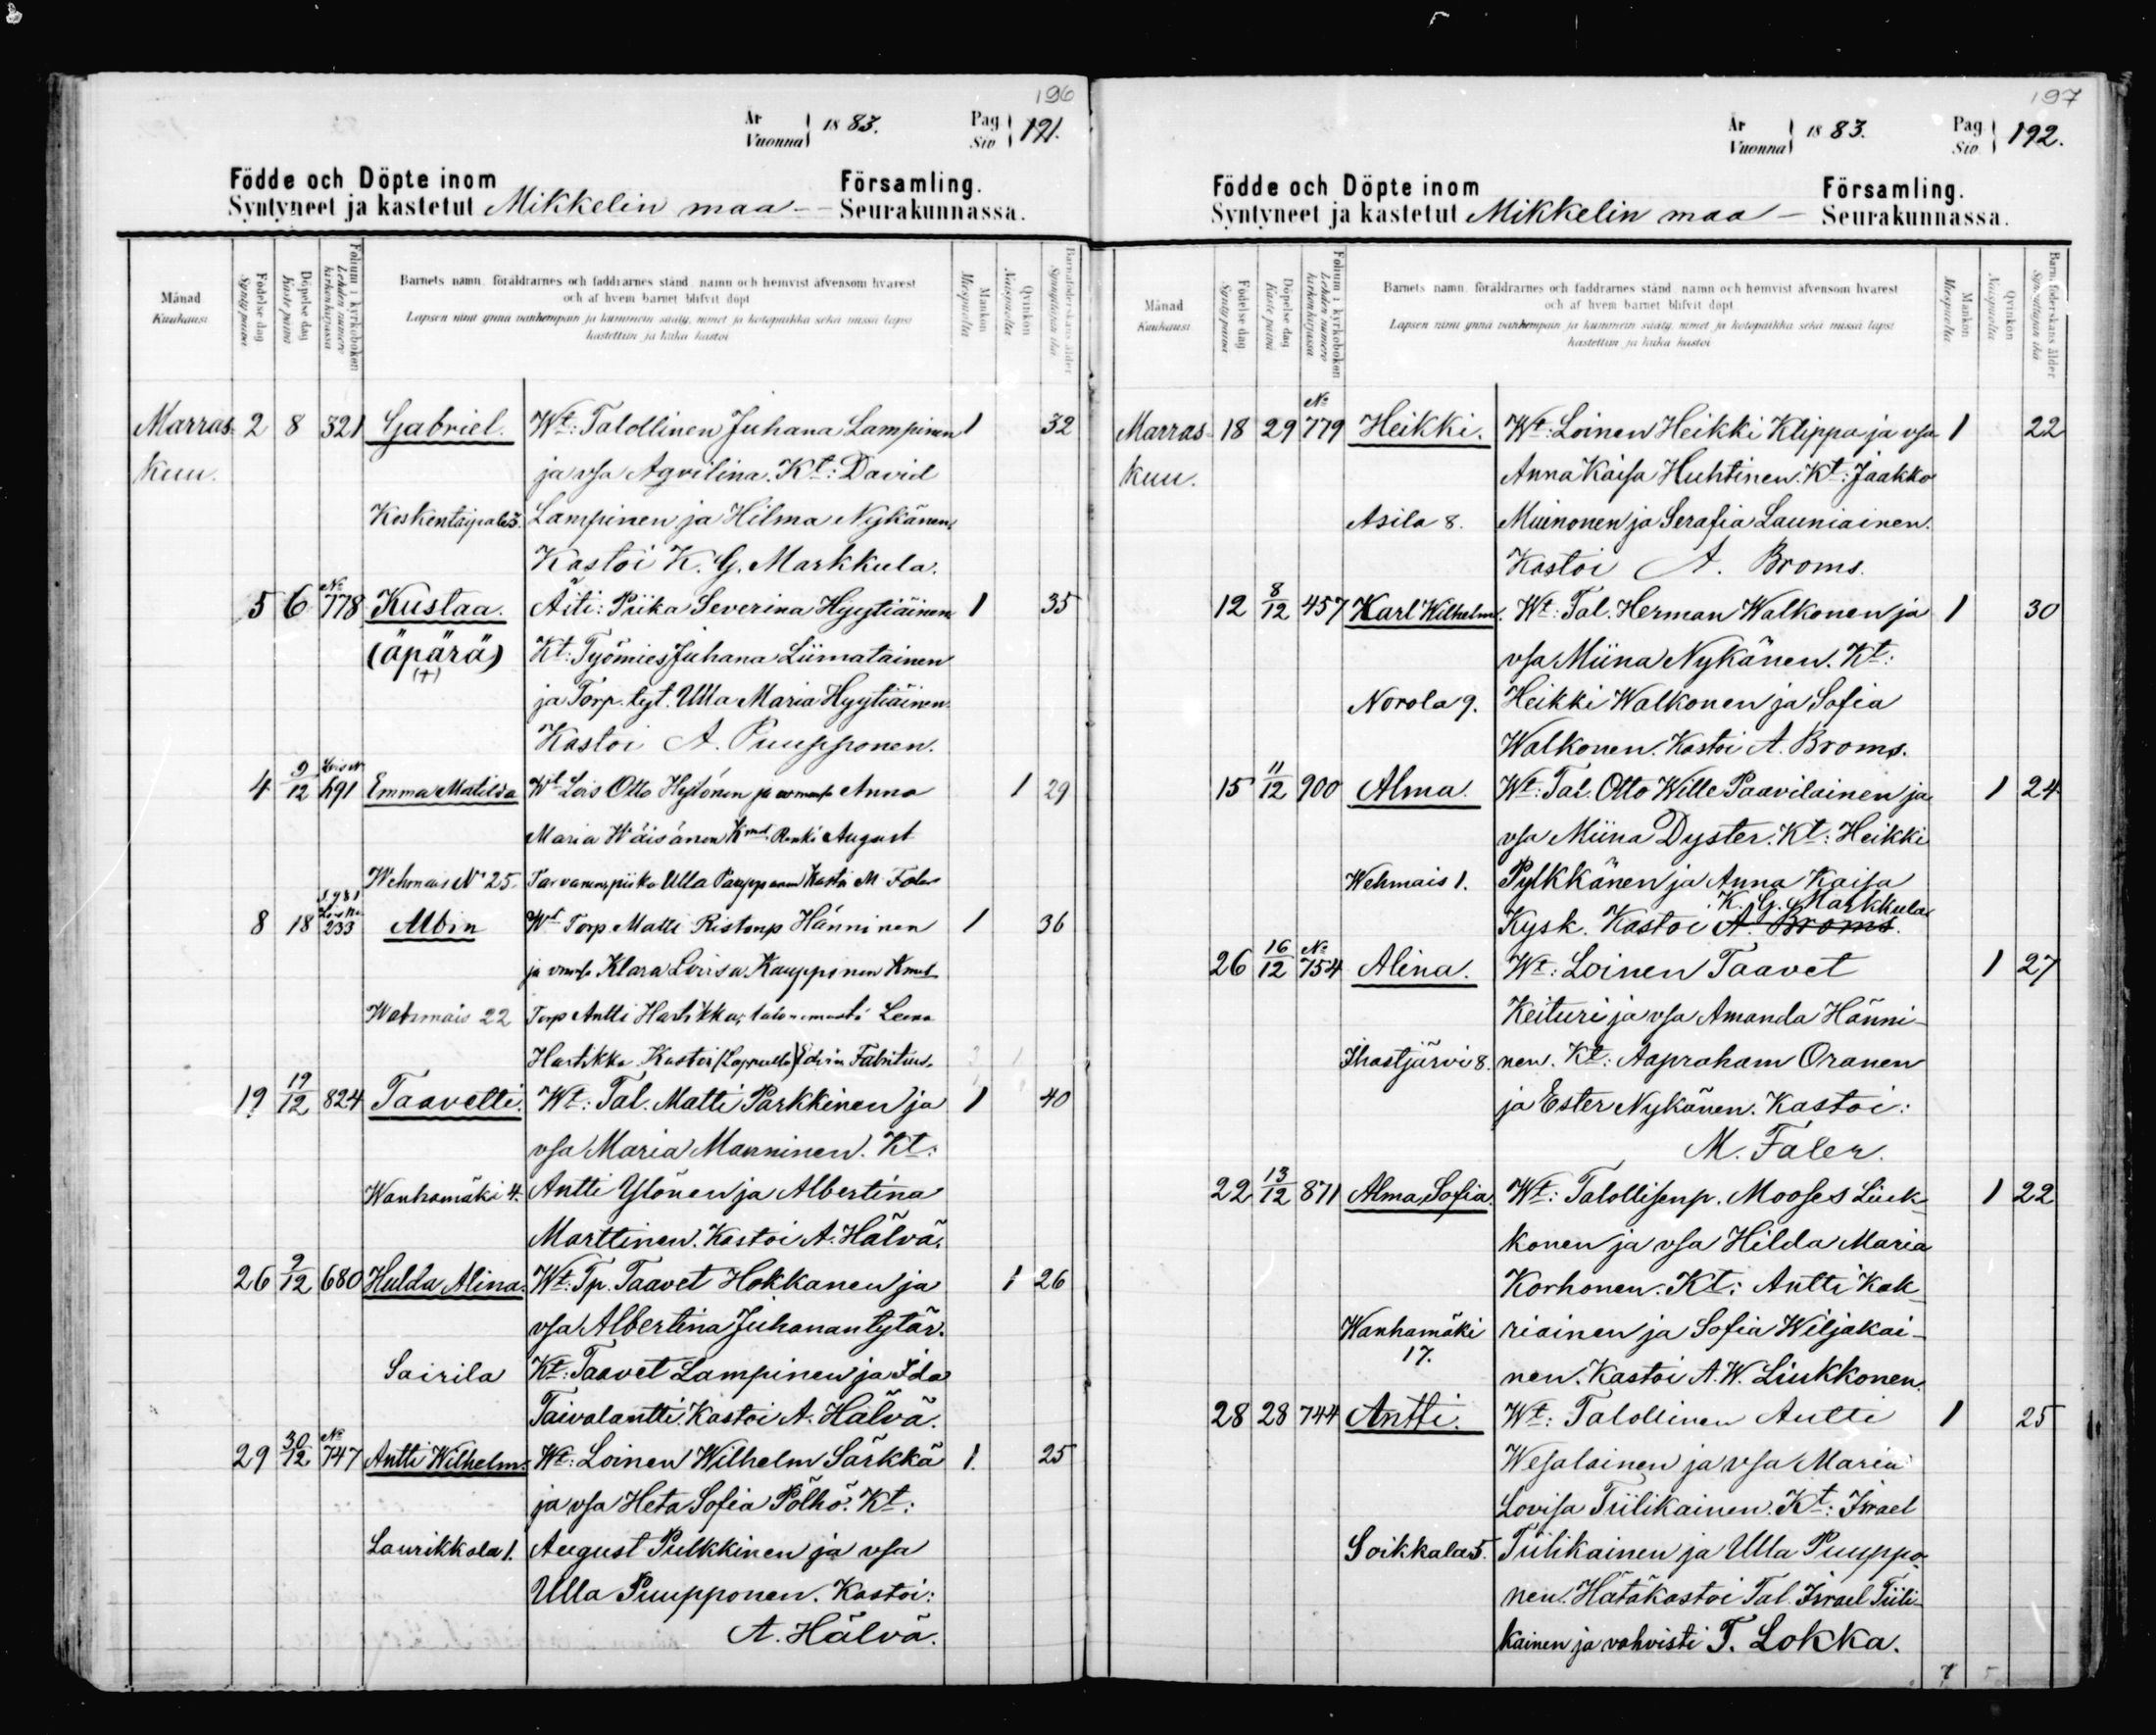 196
År
Vuonna 1883.
Pag.
Siv. 191.
Födde och Döpte inom Församling.
Syntyneet ja kastetut Mikkelin maa- Seurakunnassa.
Månad
Kuukausi
Födelse dag
Synty päivä
Döpelse dag
Kaste päivä
Folium i kyrkoboken
Lehden numero kirkonkirjassa
Barnets namn, föräldrarnes och faddrarnes stånd, namn och hemvist äfvensom hvarest
och af hvem barnet blifvit döpt
Lapsen nimi ynnä vanhempain ja kummein sääty, nimet ja kotopaikka sekä missä lapsi
kastettiin ja kuka kastoi
Mankön
Miespuolta
Qvinkön
Naispuolta
Barnaföderskans ålder
Marras- 2 8 321 Gabriel. Wt: Talollinen Juhana Lampinen 1 32
kuu. ja vsa Aqvilina. Kt: David
Koskentaipale 3. Lampinen ja Hilma Nykänen
Kastoi K. G. Markkula.
5 6 No 778 Kustaa. Äiti: Piika Severina Hyytiäinen 1 35
(äpärä) Kt: Työmies Juhana Liimatainen
(+) ja Torp. tyt. Ulla Maria Hyytiäinen.
Kastoi A. Puupponen.
4 9/12 691 Emma Matilda Wt Lois Otto Hytönen ja Anna 1 29
Maria Wäisänen Kmd. Renki August
Wehmais No 25. Tarvanen, piika Ulla Kastoi M. Faler
8 18 233 Albin Wt Torp. Matti Ristonp Hänninen 1 36
ja Klara Lovisa Kaupponen Kmd
Wehmais 22 Torp Antti Hartikka, Leena
Hartikka. Kastoi Edvin Fabritius.
19 19/12 824 Taavetti. Wt: Tal. Matti Parkkinen ja 1 40
vsa Maria Manninen. Kt:
Wanhamäki 4. Antti Ylönen ja Albertina
Marttinen. Kastoi A. Hälvä.
26 9/12 680 Hulda Alina. Wt: Tp. Taavet Hokkanen ja 1 26
vsa Albertina Juhanantytär.
Sairila Kt: Taavet Lampinen ja Ida
Taivalantti. Kastoi A. Hälvä.
29 30/12 No 747 Antti Wilhelm. Wt: Loinen Wilhelm Särkkä 1. 25
ja vsa Heta Sofia Pölhö. Kt:
Laurikkala 1. August Pulkkinen ja vsa
Ulla Puupponen. Kastoi:
A. Hälvä.
197
År
Vuonna 1883.
Pag.
Siv. 192.
Födde och Döpte inom Församling.
Syntyneet ja kastetut Mikkelin maa- Seurakunnassa.
Månad
Kuukausi
Födelse dag
Synty päivä
Döpelse dag
Kaste päivä
Folium i kyrkoboken
Lehden numero kirkonkirjassa
Barnets namn, föräldrarnes och faddrarnes stånd, namn och hemvist äfvensom hvarest
och af hvem barnet blifvit döpt
Lapsen nimi ynnä vanhempain ja kummein sääty, nimet ja kotopaikka sekä missä lapsi
kastettiin ja kuka kastoi
Mankön
Miespuolta
Qvinkön
Naispuolta
Barnföderskans ålder
Synnyttäjän ikä
Marras- 18 29 No 779 Heikki. Wt: Loinen Heikki Klippa ja vsa 1 22
kuu. Anna Kaisa Huhtinen. Kt: Jaakko
Asila 8. Muinonen ja Serafia Launiainen.
Kastoi A. Broms.
12 8/12 457 Karl Wilhelm. Wt: Tal. Herman Walkonen ja 1 30
vsa Miina Nykänen. Kt:
Norola 9. Heikki Walkonen ja Sofia
Walkonen. Kastoi A. Broms.
15 11/12 900 Alma. Wt: Tal. Otto Wille Paavilainen ja 1 24
vsa Miina Dyster. Kt: Heikki
Wehmais 1. Pylkkänen ja Anna Kaisa
K. G. Markkula
Kysk. Kastoi A Broms.
26 16/12 No 754 Alina. Wt: Loinen Taavet 1 27
Keituri ja vsa Amanda Hänni-
Ihastjärvi 8. nen. Kt: Aapraham Oranen
ja Ester Nykänen. Kastoi:
M. Faler.
22 13/12 871 Alma Sofia. Wt: Talollisenp. Mooses Liuk- 1 22
konen ja vsa Hilda Maria
Korhonen. Kt: Antti Kak-
Wanhamäki riainen ja Sofia Wiljakai-
17. nen. Kastoi A. W. Liukkonen.
28 28 744 Antti. Wt: Talollinen Antti 1 25
Wesalainen ja vsa Maria
Lovisa Tiilikainen. Kt: Israel
Soikkala 5. Tiilikainen ja Ulla Puuppo-
nen. Hätäkastoi Tal. Israel Tiili-
kainen ja vahvisti T. Lokka.
7 5